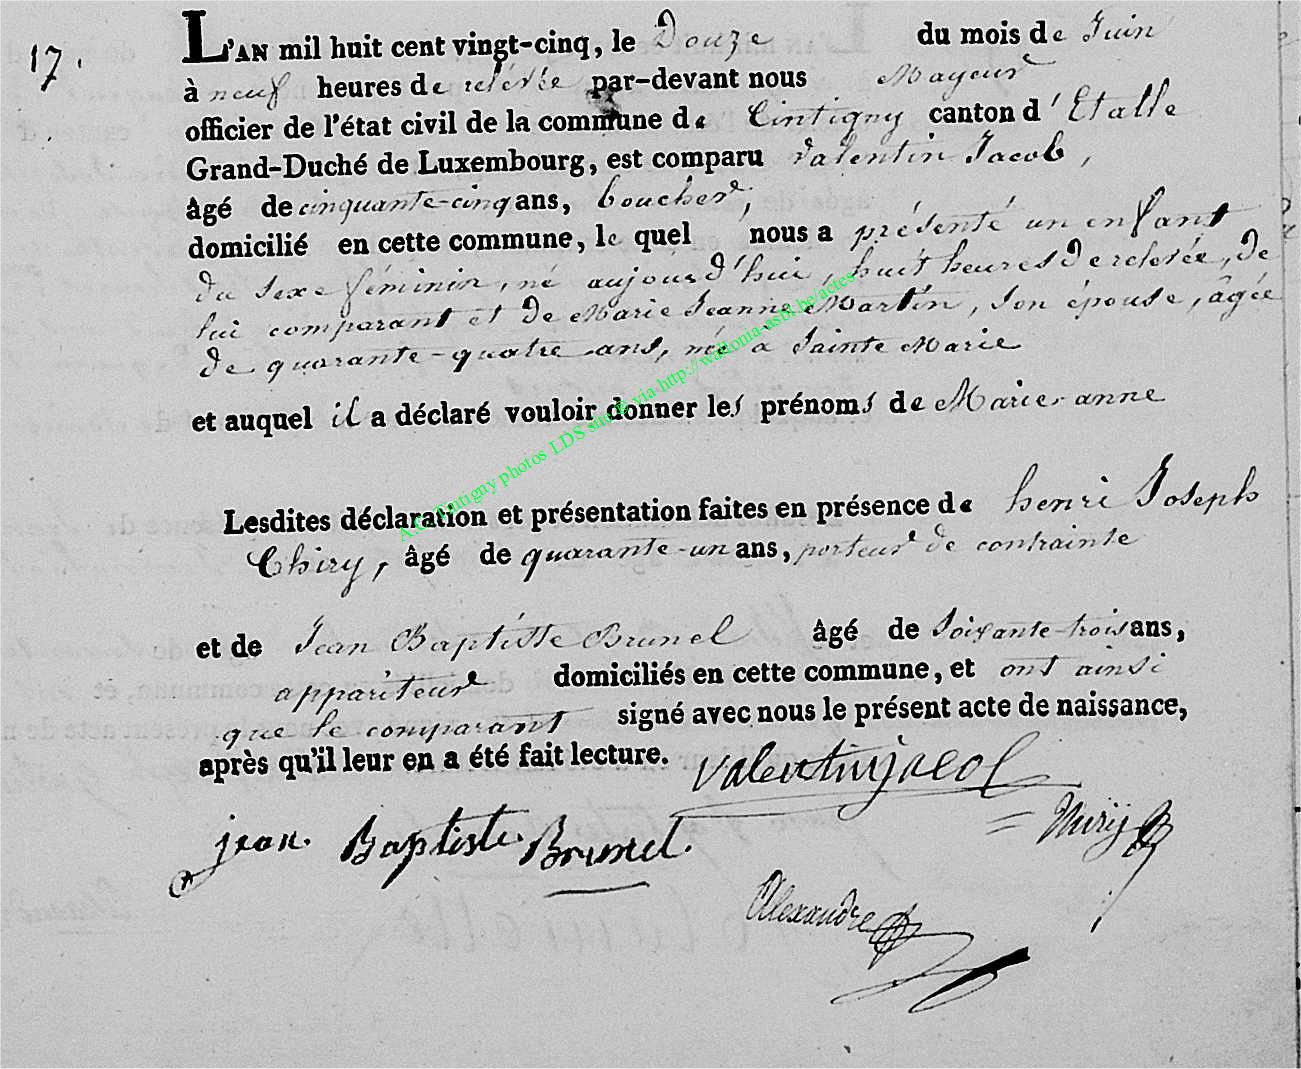 17.
L'AN mil huit cent vingt-cinq, le Douze du mois de Juin
à neuf heures de relevée par-devant nous Mayeur
officier de l'état civil de la commune de Tintigny canton d'Etalle
Grand-Duché de Luxembourg, est comparu Valentin Jacob,
âgé de cinquante-cinq ans, boucher,
domicilié en cette commune, le quel nous a présenté un enfant
du sexe féminin, né aujourd'hui, huit heures de relevée, de
lui comparant et de Marie Jeanne Martin, son épouse, âgée
de quarante-quatre ans, née à Sainte Marie
et auquel il a déclaré vouloir donner les prénoms de Marie-anne
A.C. Tintigny photos LDS site & via http://wallonia-asbl.be/actes
Lesdites déclaration et présentation faites en présence de henri Joseph
Thiry, âgé de quarante-un ans, porteur de contrainte
et de Jean Baptiste Brunel âgé de soixante-trois ans,
appariteur domiciliés en cette commune, et ont ainsi
que le comparant signé avec nous le présent acte de naissance,
après qu'il leur en a été fait lecture. valentin jacob
jean. Baptiste Brunel. thiry
Alexandre